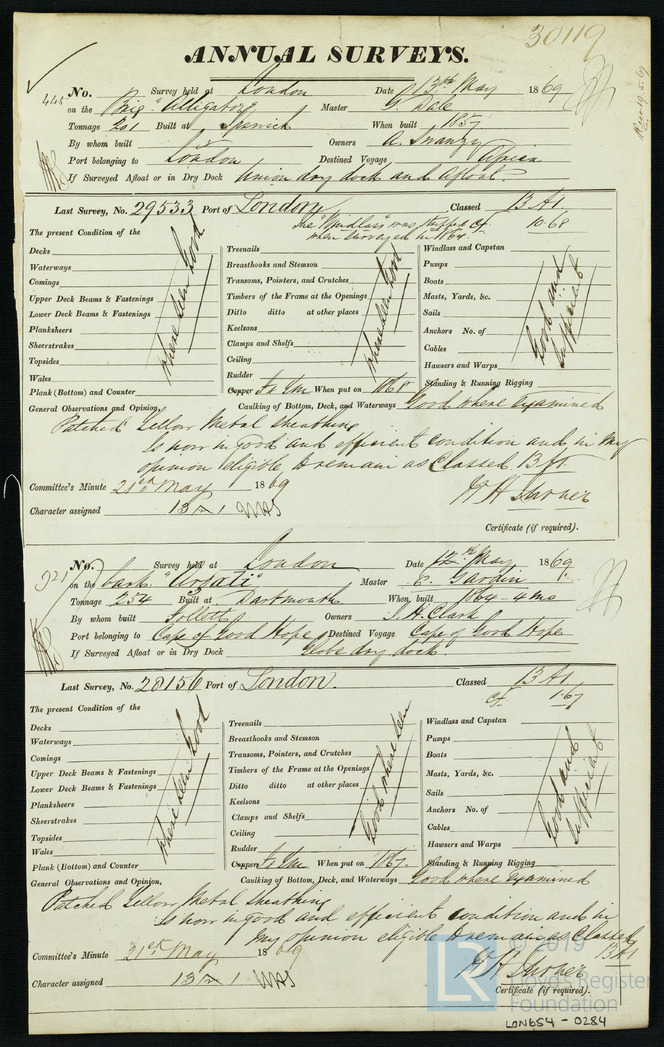 30119
ANNUAL SURVEYS.
448 No. Survey held at London Date 13th May 1869
on the Brig "Alligator" Master G Dale
Tonnage 201 Built at Ipswich When built 1857
By whom built Owners A. Swanzy
Port belonging to London Destined Voyage Africa
If Surveyed Afloat or in Dry Dock Union dry dock and Afloat.
Last Survey, No. 29533 Port of London Classed 13 A1
The "Windlass" was stripped cf. 10.68
when surveyed in 1864
The present Condition of the
Decks
Waterways
Comings
Upper Deck Beams & Fastenings
Lower Deck Beams & Fastenings
Planksheers
Sheerstrakes
Topsides
Wales
Plank (Bottom) and Counter
where seen Good
Treenails
Breasthooks and Stemson
Transoms, Pointers, and Crutches
Timbers of the Frame at the Openings
Ditto ditto at other places
Keelsons
Clamps and Shelfs
Ceiling
Rudder
Copper When put on 1868
where seen Good
Windlass and Capstan
Pumps
Boats
Masts, Yards, &c.
Sails
Anchors No. of
Cables
Hawsers and Warps
Standing & Running Rigging
Good and sufficient
General Observations and Opinion, Caulking of Bottom, Deck, and Waterways Good where Examined
Patched Yellow Metal Sheathing
Is now in good and efficient condition and in my
opinion eligible to remain as Classed 13 A1
Committee's Minute 21st May 1869
W H Turner
Character assigned 13 A 1
Certificate (if required).
921 No. Survey held at London Date 12th May 1869
on the bark "Ursati" Master C. Jardin
Tonnage 254 Built at Dartmouth When built 1864-4 mo
By whom built Follett Owners J. H. Clark
Port belonging to Cape of Good Hope Destined Voyage Cape of Good Hope
If Surveyed Afloat or in Dry Dock Globe dry dock.
Last Survey, No. 28156 Port of London. Classed 13 A1
cf. 1.67
The present Condition of the
Decks
Waterways
Comings
Upper Deck Beams & Fastenings
Lower Deck Beams & Fastenings
Planksheers
Sheerstrakes
Topsides
Wales
Plank (Bottom) and Counter
where seen Good
Treenails
Breasthooks and Stemson
Transoms, Pointers, and Crutches
Timbers of the Frame at the Openings
Ditto ditto at other places
Keelsons
Clamps and Shelfs
Ceiling
Rudder
Copper When put on 1867.
Good where seen
Windlass and Capstan
Pumps
Boats
Masts, Yards, &c.
Sails
Anchors No. of
Cables
Hawsers and Warps
Standing & Running Rigging
Good and sufficient
General Observations and Opinion, Caulking of Bottom, Deck, and Waterways Good where Examined
Patched Yellow Metal Sheathing
Is now in good and efficient condition and in
my opinion eligible to remain as Classed
13 A1
Committee's Minute 21st May 1869
W H Turner
Character assigned 13 A 1
Certificate (if required).
© 2019
LR Lloyd's Register
Foundation
LON654-0284